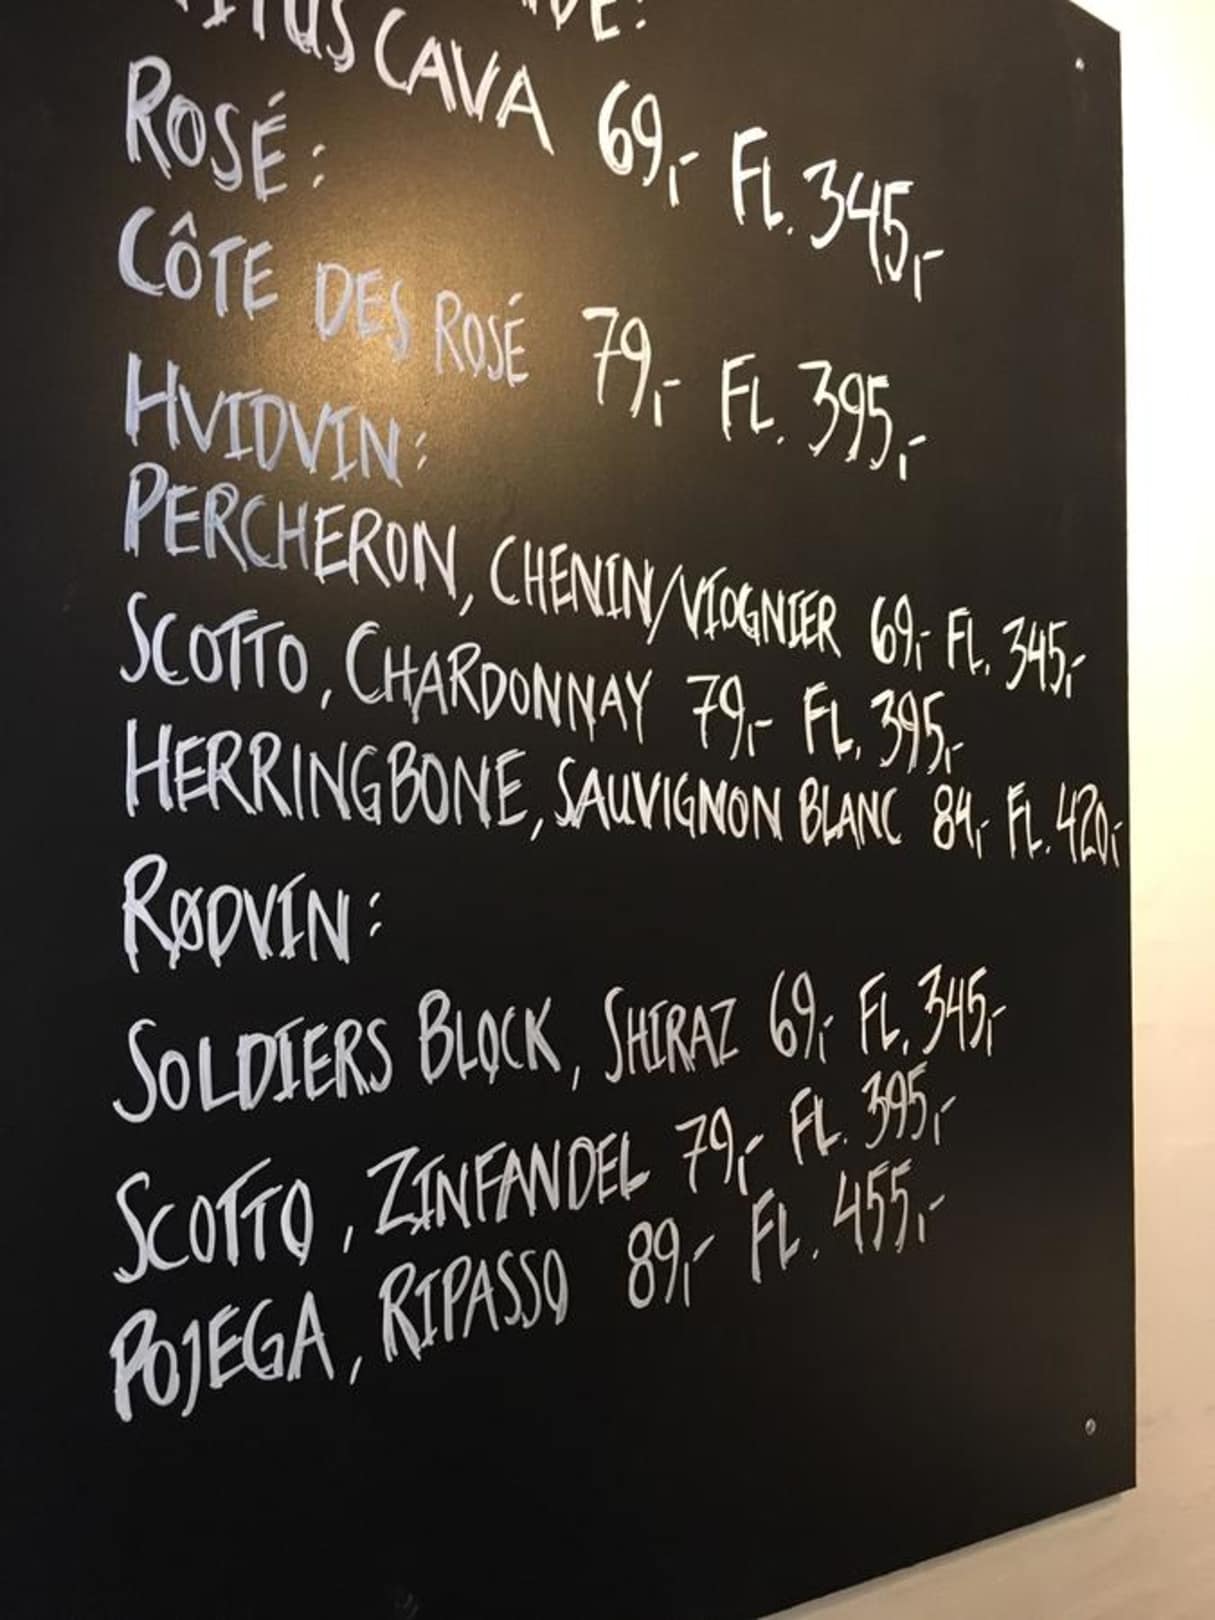 CAVA 69,- FL. 345,-
ROSÉ:
CÔTE DES ROSÉ 79,- FL. 395,-
HVIDVIN:
PERCHERON, CHENIN/VIOGNIER 69,- FL. 345,-
SCOTTO, CHARDONNAY 79,- FL. 395,-
HERRINGBONE, SAUVIGNON BLANC 84,- FL. 420,-
RØDVIN:
SOLDIERS BLOCK, SHIRAZ 69,- FL. 345,-
SCOTTO, ZINFANDEL 79,- FL. 395,-
POJEGA, RIPASSO 89,- FL. 455,-